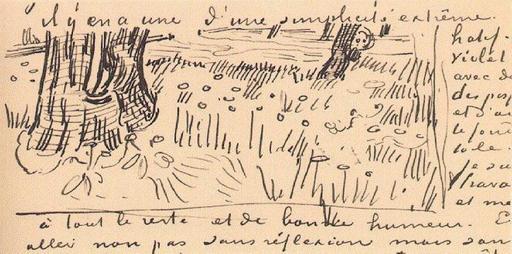 il y en a une d'une simplicité extrême.
violet
avec d
des
et d'au
le
toile.
je su
trava
et me
à tout le reste et de bonne humeur. E
aller non pas sans réflexion mais san